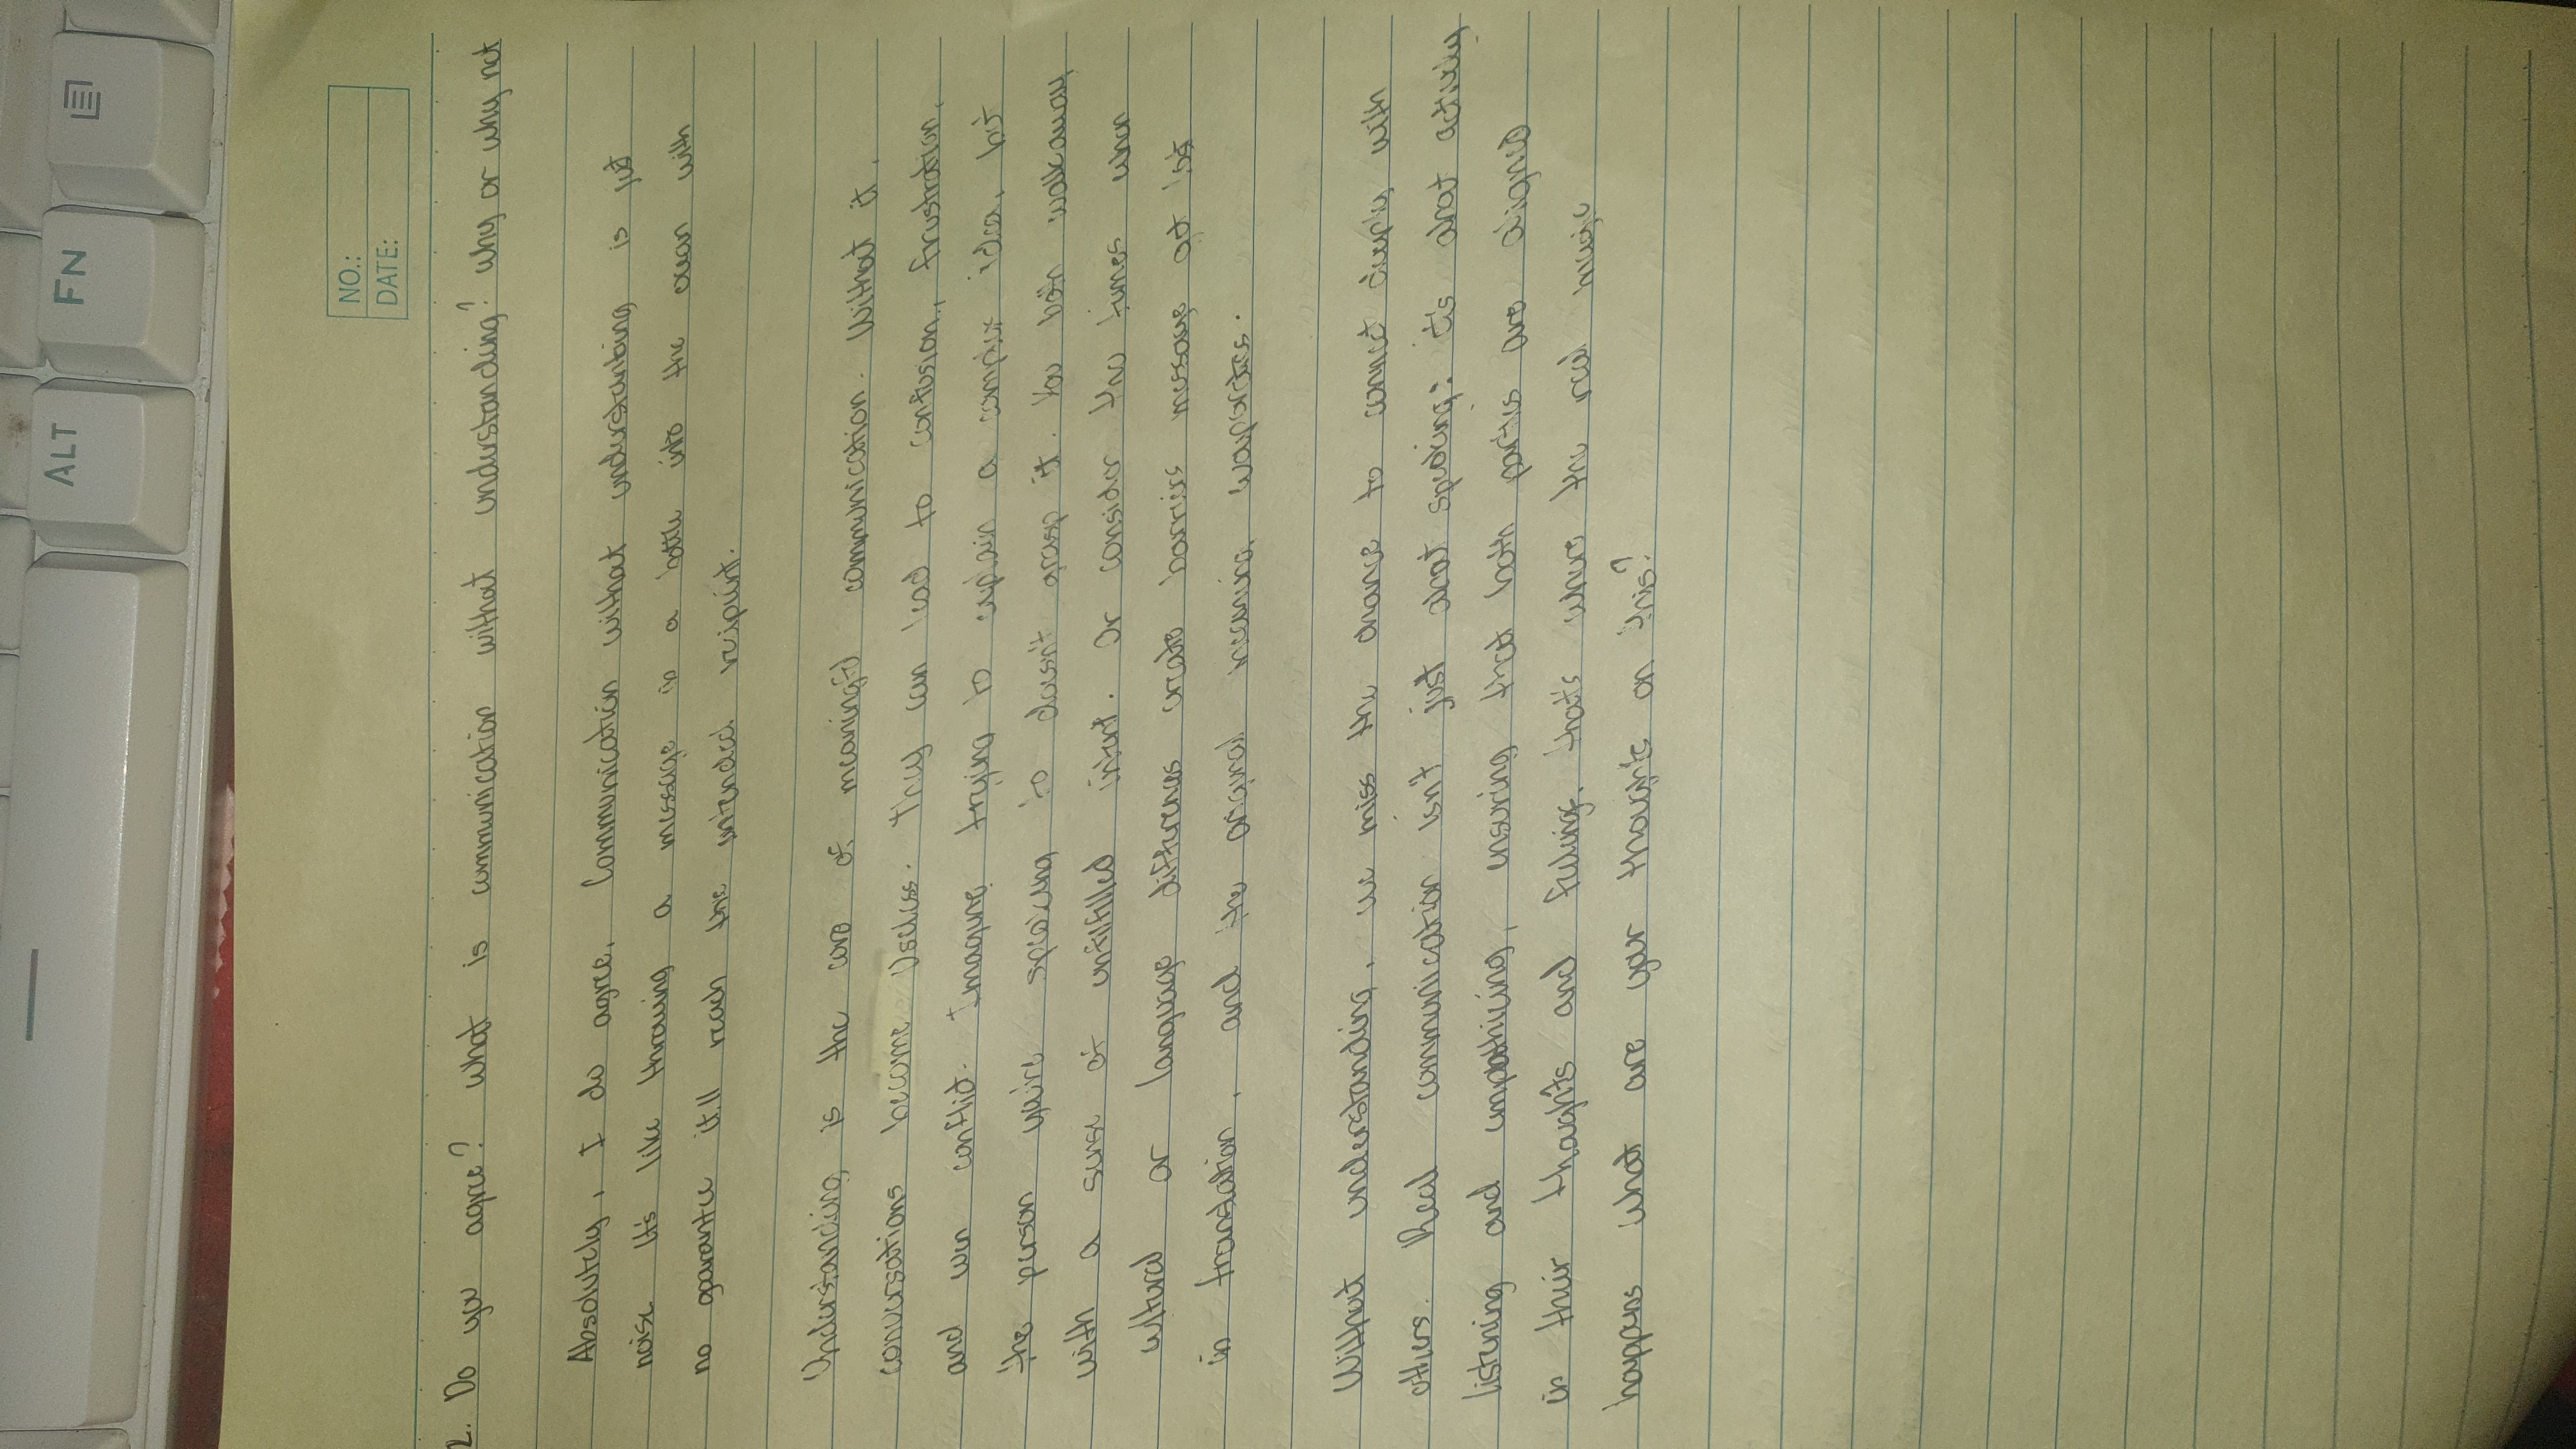 ALT FN
NO.:
DATE:
2. Do you agree? What is communication without understanding? Why or why not
Absolutely, I do agree. Communication without understanting is just
noise It's like throwing a message in a bottle into the ocean with
no garantee it'll reach the intended recipient.
Understanding is the core of meaningful communication. Without it,
conversations become Useless. They can lead to confusion, frustration,
and even conflict. Imagine trying to explain a complex idea, but
the person you're speaking to doesn't grasp it. You both walk away
with a sense of unfilfilled intent. Or consider the times when
cultural or language differences create barriers message get lost
in translation, and the original meaning
Without understanding, we miss the chance to connect deeply with
others. Real communication isn't just about speaking: it's about actively
listening and empathizing, ensuring that both parties are aligned
in their thoughts and feelings. that's where the real magic
happens What are your thoughts on this?